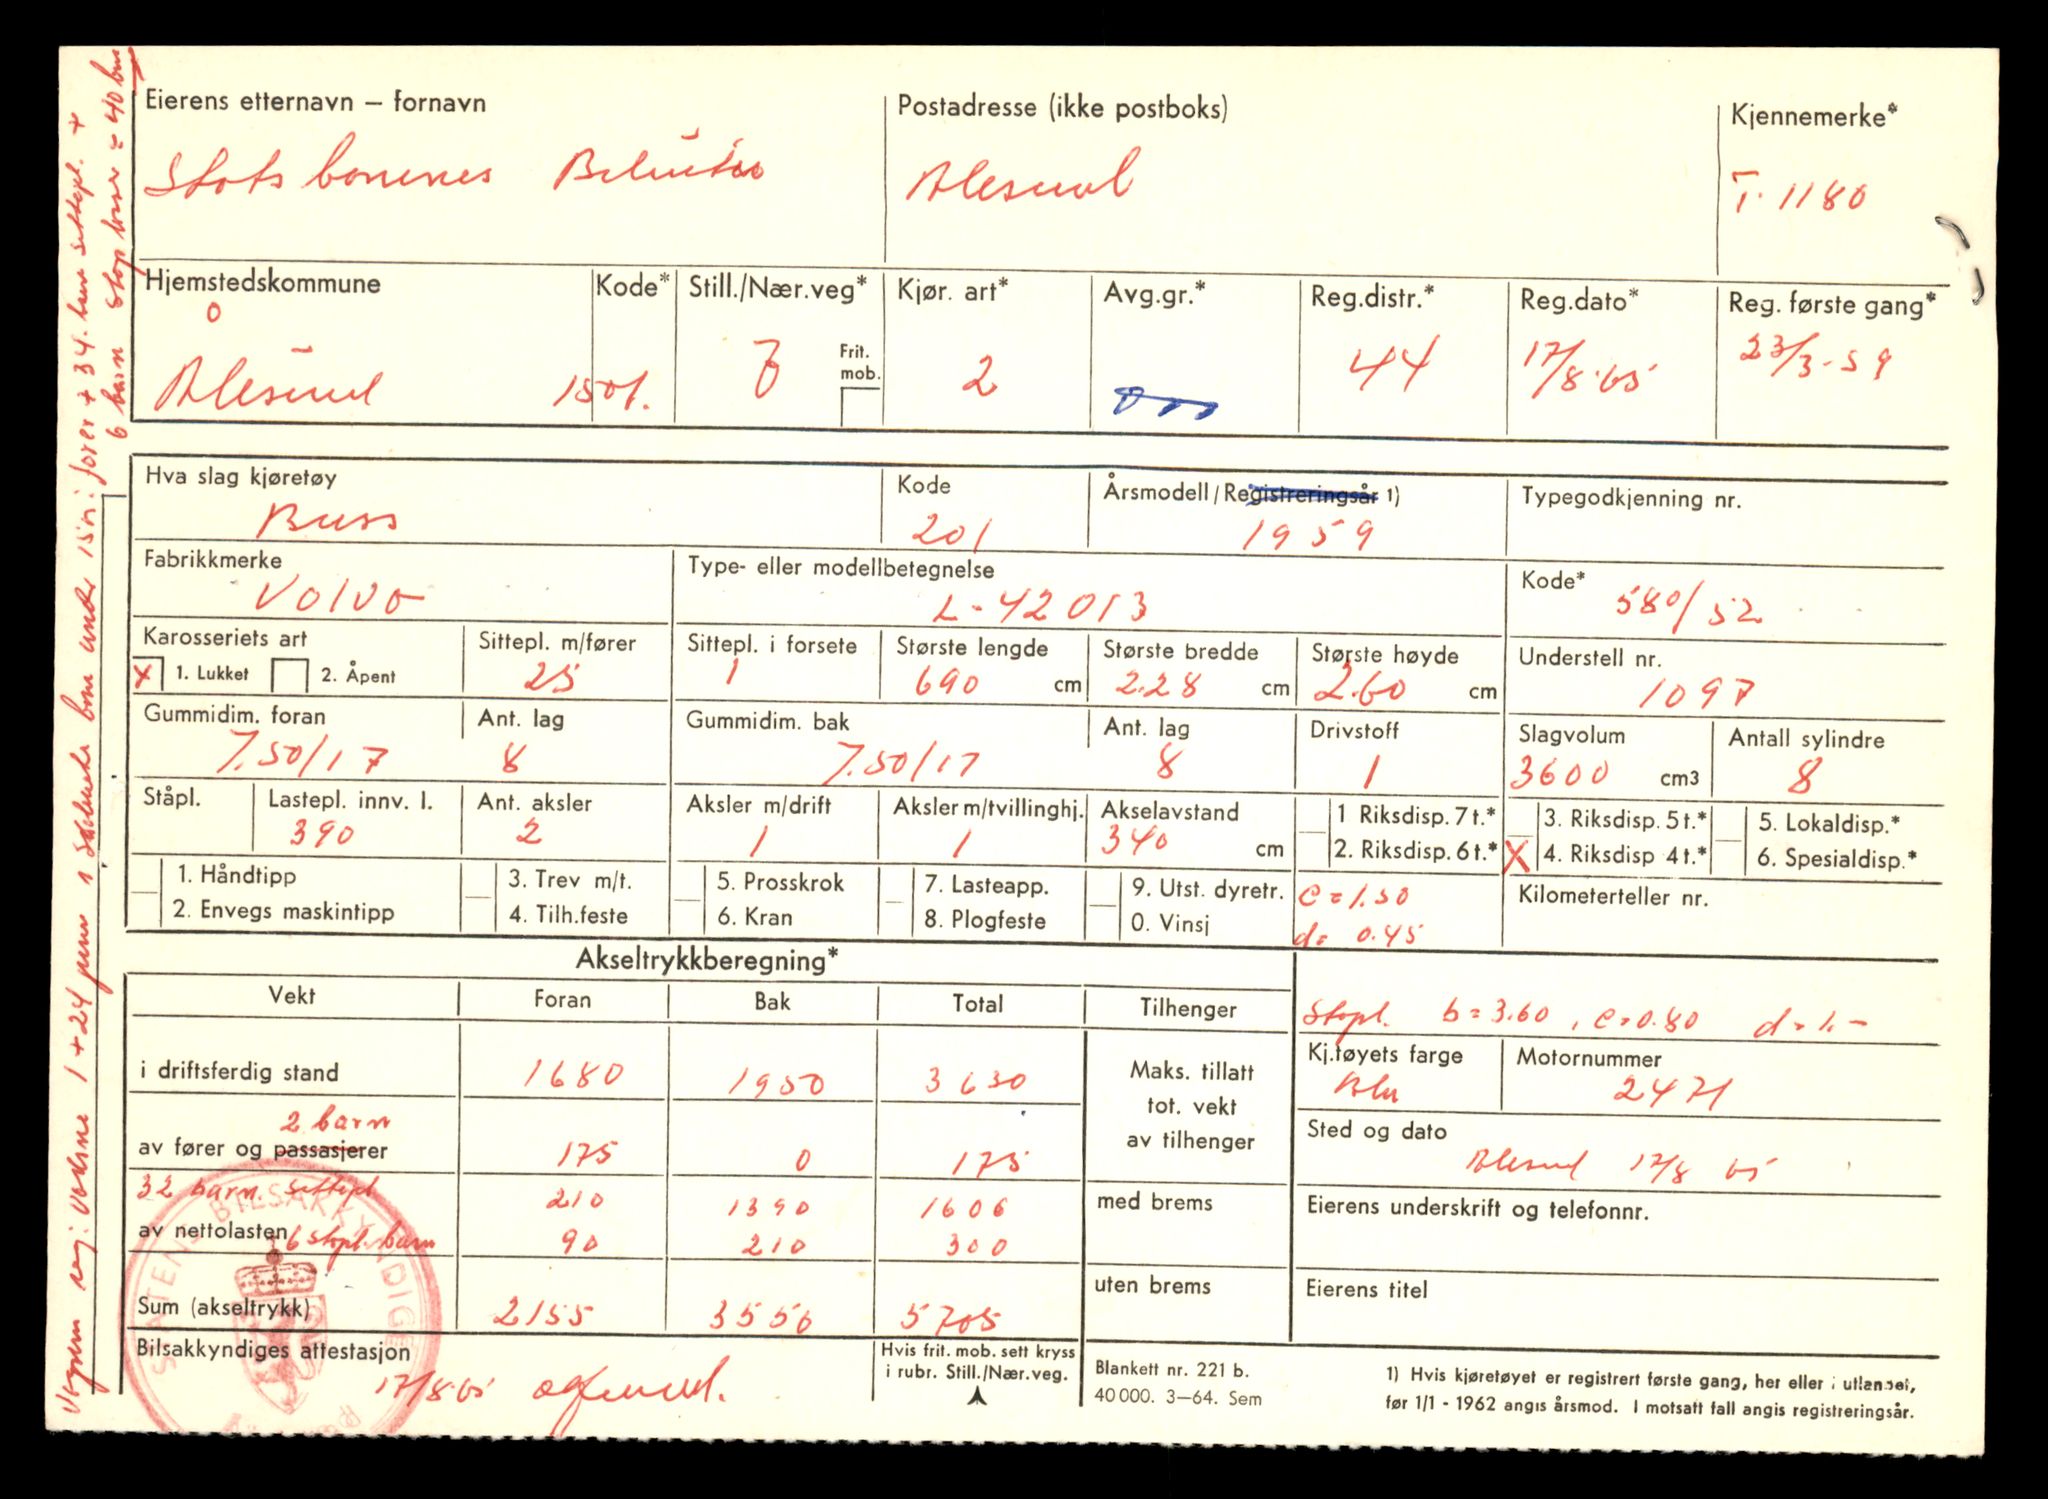 Eierens etternavn – fornavn
Postadresse (ikke postboks)
Kjennemerke*
Statsbanenes
Alesund
T-1180
Hjemstedskommune
Kode*
Still./Nær.veg*
Kjør. art*
Avg.gr.*
Reg.distr.*
Reg.dato*
Reg. første gang*
Ålesund
1501.
Frit. mob.
2
44
17/8.65
23/3-59
Hva slag kjøretøy
Kode
Årsmodell/Registreringsår 1)
Typegodkjenning nr.
Buss
201
1959
Fabrikkmerke
Type- eller modellbetegnelse
Kode*
Volvo
L-42013
580/52
Karosseriets art
Sittepl. m/fører
Sittepl. i forsete
Største lengde
Største bredde
Største høyde
Understell nr.
x 1. Lukket
2. Åpent
25
1
690 cm
2.28 cm
2.60 cm
1097
Gummidim. foran
Ant. lag
Gummidim. bak
Ant. lag
Drivstoff
Slagvolum
Antall sylindre
7.50/17
8
7.50/17
8
1
3600 cm3
8
Ståpl.
Lastepl. innv. l.
Ant. aksler
Aksler m/drift
Aksler m/tvillinghj.
Akselavstand
1 Riksdisp. 7 t.*
3. Riksdisp. 5 t.*
5. Lokaldisp.*
390
2
1
1
340 cm
2. Riksdisp. 6 t.*
X 4. Riksdisp 4 t.*
6. Spesialdisp.*
1. Håndtipp
3. Trev m/t.
5. Prosskrok
7. Lasteapp.
9. Utst. dyretr.
c = 1.50
Kilometerteller nr.
2. Envegs maskintipp
4. Tilh.feste
6. Kran
8. Plogfeste
0. Vinsj
d = 0.45
Akseltrykkberegning*
Vekt
Foran
Bak
Total
Tilhenger
Stopl. b = 3.60, c = 0.80 d = 1.-
i driftsferdig stand
1680
1950
3630
Maks. tillatt
tot. vekt
av tilhenger
Kj.tøyets farge
Motornummer
2471
2 barn
av fører og passasjerer
175
0
175
Sted og dato
Alesund 17/8 65
32 barn. sittepl
210
1390
1606
med brems
Eierens underskrift og telefonnr.
av nettolasten
6 stopl. barn
90
210
300
uten brems
Eierens titel
Sum (akseltrykk)
2155
3550
5705
Bilsakkyndiges attestasjon
17/8.65
Hvis frit. mob. sett kryss
i rubr. Still./Nær.veg.
Blankett nr. 221 b.
40 000. 3–64. Sem
1) Hvis kjøretøyet er registrert første gang, her eller i utlandet,
før 1/1 - 1962 angis årsmod. I motsatt fall angis registreringsår.
STATENS BILSAKKYNDIGE